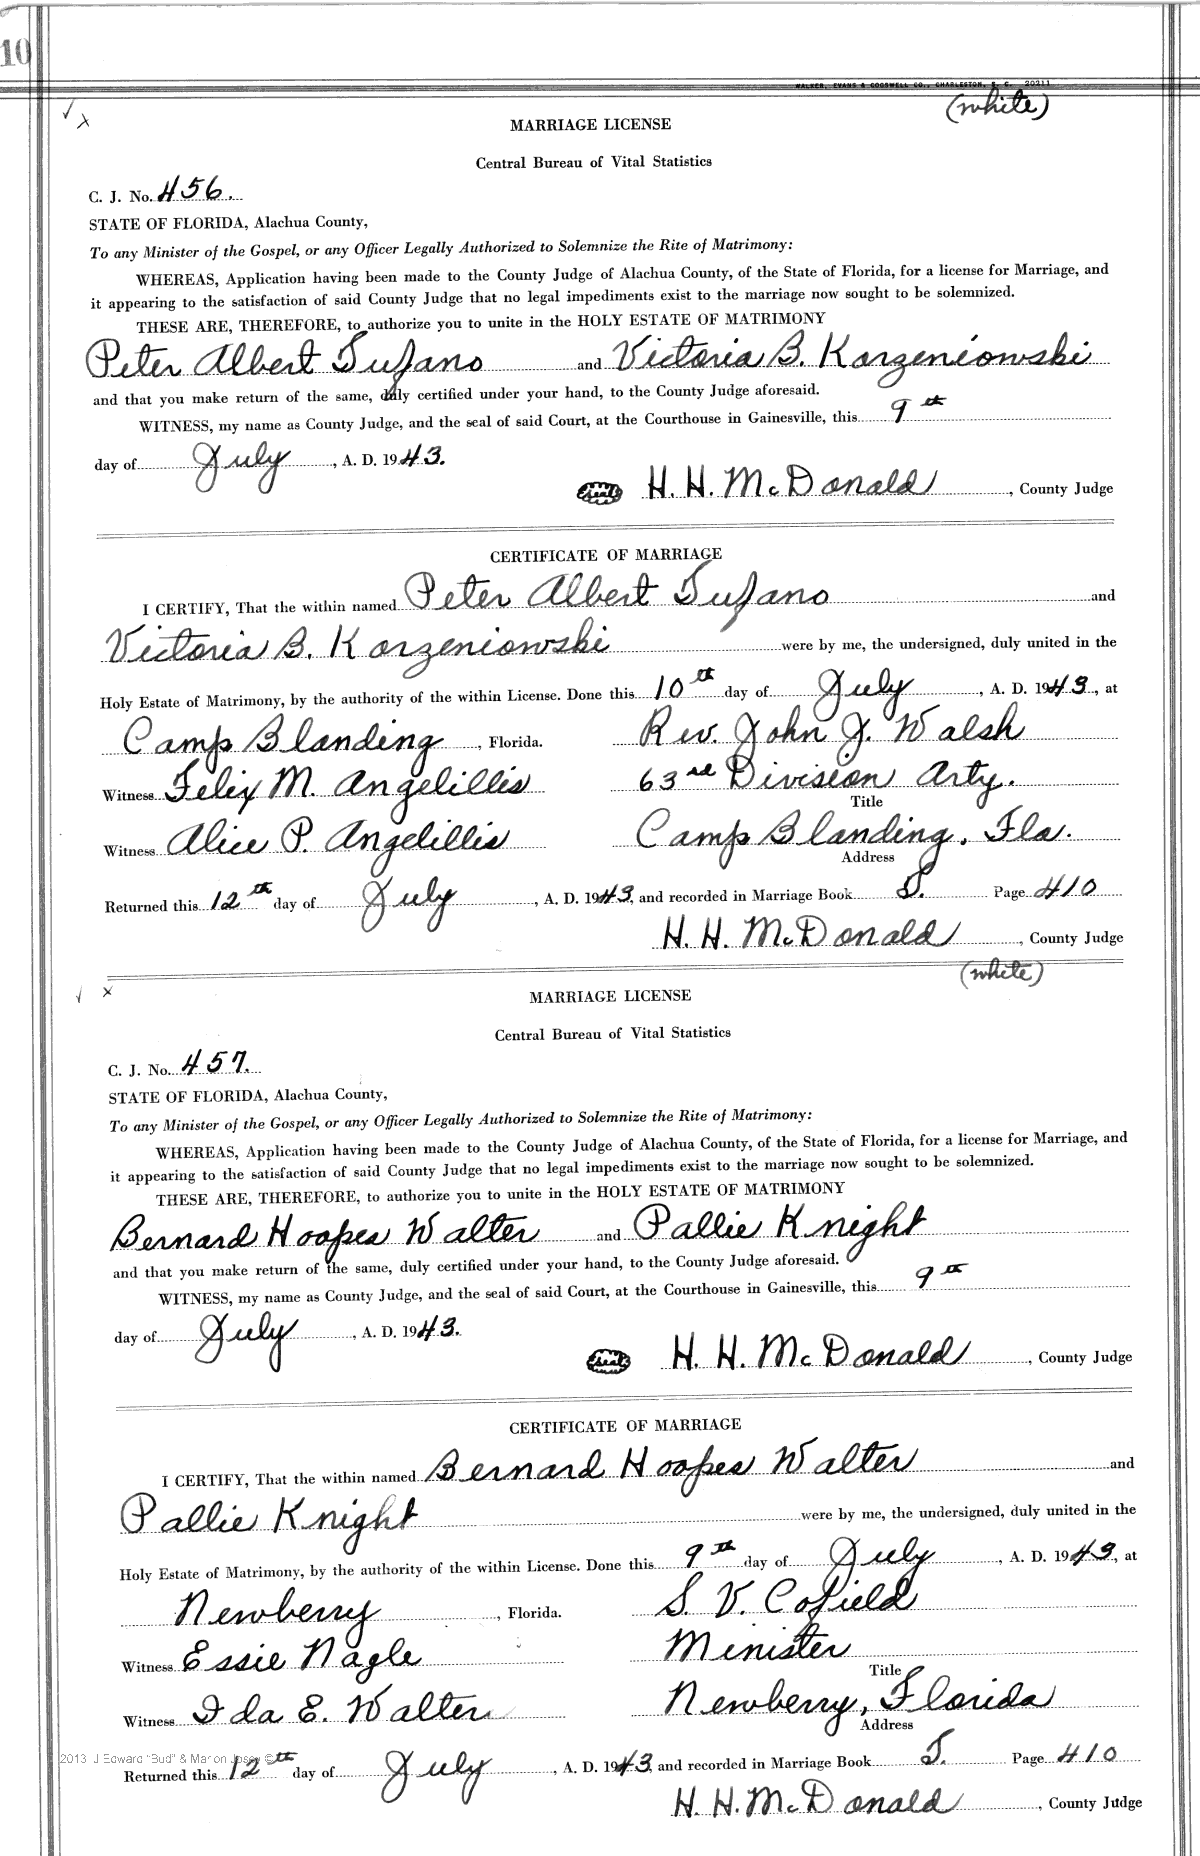 10
WALKER, EVANS & COGSWELL CO., CHARLESTON, S. C. 20211
(white)
MARRIAGE LICENSE
Central Bureau of Vital Statistics
C. J. No. 456.
STATE OF FLORIDA, Alachua County,
To any Minister of the Gospel, or any Officer Legally Authorized to Solemnize the Rite of Matrimony:
WHEREAS, Application having been made to the County Judge of Alachua County, of the State of Florida, for a license for Marriage, and
it appearing to the satisfaction of said County Judge that no legal impediments exist to the marriage now sought to be solemnized.
THESE ARE, THEREFORE, to authorize you to unite in the HOLY ESTATE OF MATRIMONY
Peter Albert Tufano and Victoria B. Korzeniowski
and that you make return of the same, duly certified under your hand, to the County Judge aforesaid.
WITNESS, my name as County Judge, and the seal of said Court, at the Courthouse in Gainesville, this 9th
day of July, A. D. 1943.
seal H. H. McDonald, County Judge
CERTIFICATE OF MARRIAGE
I CERTIFY, That the within named Peter Albert Tufano and
Victoria B. Korzeniowski were by me, the undersigned, duly united in the
Holy Estate of Matrimony, by the authority of the within License. Done this 10th day of July, A. D. 1943, at
Camp Blanding, Florida. Rev. John J. Walsh
Witness Felix M. Angelillis 63rd Division Arty.
Title
Witness Alice P. Angelillis Camp Blanding, Fla.
Address
Returned this 12th day of July, A. D. 1943, and recorded in Marriage Book T. Page 410
H. H. McDonald, County Judge
(white)
MARRIAGE LICENSE
Central Bureau of Vital Statistics
C. J. No. 457.
STATE OF FLORIDA, Alachua County,
To any Minister of the Gospel, or any Officer Legally Authorized to Solemnize the Rite of Matrimony:
WHEREAS, Application having been made to the County Judge of Alachua County, of the State of Florida, for a license for Marriage, and
it appearing to the satisfaction of said County Judge that no legal impediments exist to the marriage now sought to be solemnized.
THESE ARE, THEREFORE, to authorize you to unite in the HOLY ESTATE OF MATRIMONY
Bernard Hoopes Walter and Pallie Knight
and that you make return of the same, duly certified under your hand, to the County Judge aforesaid.
WITNESS, my name as County Judge, and the seal of said Court, at the Courthouse in Gainesville, this 9th
day of July, A. D. 1943.
seal H. H. McDonald, County Judge
CERTIFICATE OF MARRIAGE
I CERTIFY, That the within named Bernard Hoopes Walter and
Pallie Knight were by me, the undersigned, duly united in the
Holy Estate of Matrimony, by the authority of the within License. Done this 9th day of July, A. D. 1943, at
Newberry, Florida. S. V. Cofield
Witness Essie Nagle Minister
Title
Witness Ida E. Walter Newberry, Florida
Address
2013 J Edward "Bud" & Marion ©
Returned this 12th day of July, A. D. 1943, and recorded in Marriage Book T. Page 410
H. H. McDonald, County Judge